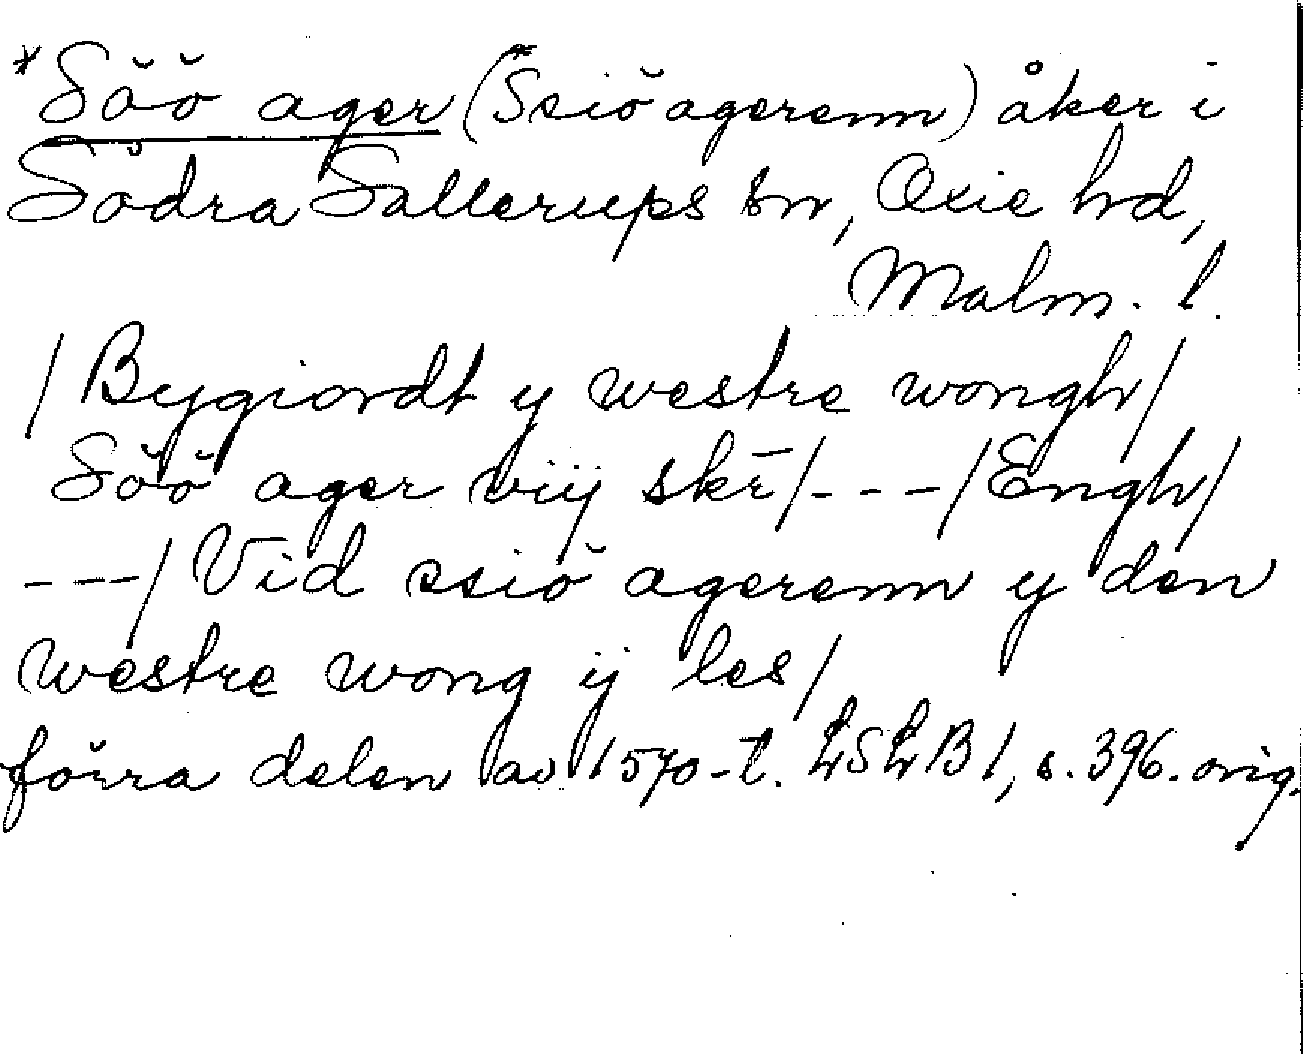 *Söö ager (*Ssiö agerenn) åker i
Södra Sallerups sn, Oxie hd,
Malm. l.
/Bygiordt y westre wongh/
Söö ager viij skr̄/---/Engh/
---/Vid ssiö agerenn y den
westre wong ij les/
förra delen av 1570-t. LSLB1, s. 396. orig.